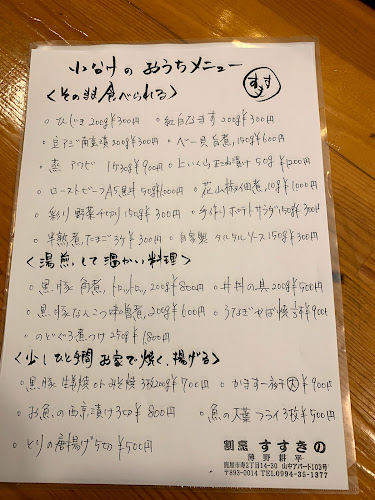 小分けのおうちメニュー
すすき
<そのまま食べられる>
・ひじき 200g¥300円 ・紅白なます 200g¥300円
・豆アジ南蛮漬 200g¥300円 ・ベー貝旨煮、150g¥600円
・蒸アワビ 1ケ30g¥900円 50g¥1200円
・ローストビーフA5黒牛 50g¥1000円 ・花山椒佃煮、10g¥1000円
・彩り野菜 150g¥300円 ・手作りポテトサラダ150g¥300円
・半熟煮たまご3ケ¥300円 ・自家製タルタルソース150g¥300円
<湯煎して温かい料理>
・黒豚角煮、トロットロッ、200g¥800円 ・牛丼の具200g¥500円
・黒豚なんこつ味噌煮、200g¥600円
・のどぐろ煮つけ250g¥1800円
<少しひと手間お家で焼く、揚げる>
・黒豚生姜焼 or みそ焼 3枚200g¥700円 大 ¥900円
・お魚の西京漬け3切¥800円 ・魚の大葉フライ3枚¥500円
・とりの唐揚げ5切¥500円
割烹 すすきの
薄野 耕平
鹿屋市寿2丁目14-30 山中アパート102号
〒893-0014 TEL0994-35-1377